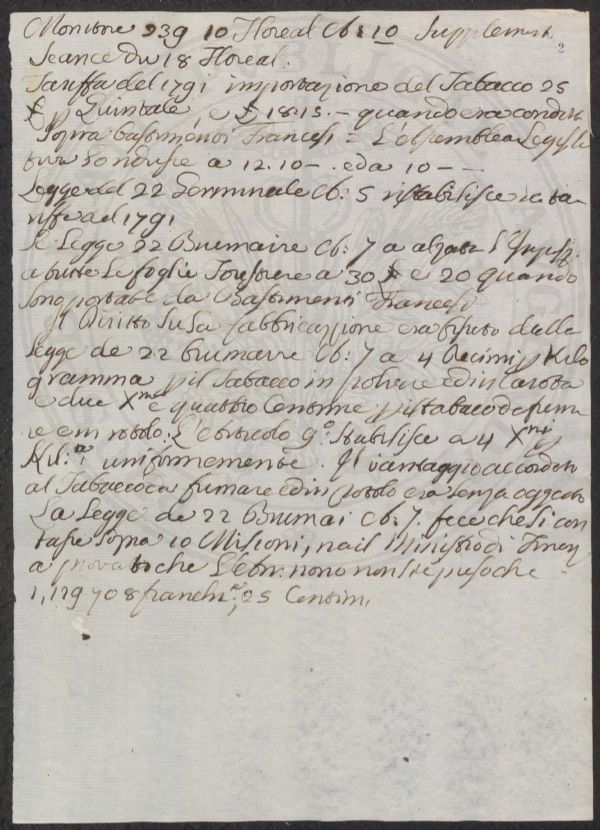 Monitore 239 10 Floreal Ch: 10 Supplement.
2
Seance du 18 Floreal.
Tariffa del 1791 importazione del Tabacco 25
£ p Quintale, e £ 18.15. — quando era condotto
sopra bastimenti Francesi = L'assemblea Legisla
tiva ridusse a 12.10 —. ed a 10 — —
Legge del 22 Germinale Ch: 5 ristabilisce la ta
riffa del 1791
La Legge 22 Brumaire Ch: 7 a alzato
a tutte le foglie forestiere a 30 £ e 20 quando
sono portate da Bastimenti Francesi
Il Diritto su la fabbricazione era fissato dalla
Legge de 22 brumaire Ch: 7 a 4 Decimi p Kilo
gramma p il Tabacco in polvere ed in carota
e due Xmi e quattro Centime p il tabaco da fuma
re e in rotolo. L'articolo 9° stabilisce a 4 Xmi p
Kil: uniformemente. Il vantaggio accordato
al Tabacco da fumare ed in rotolo era senza oggetto
La Legge de 22 Brumai Ch: 7. fece che si con
tasse sopra 10 Milioni, ma il Ministro di Finan
a provato che L'an: nono non si è preso che
1,129708 franchi, 25 Centim,